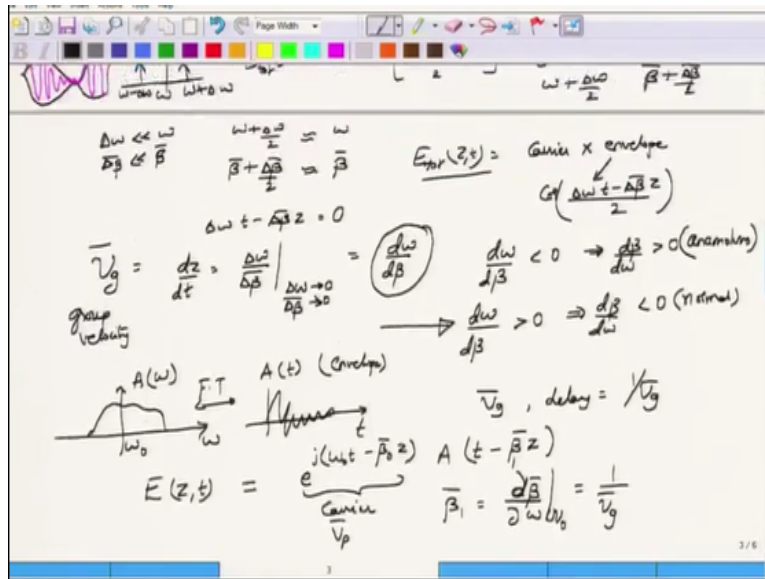 Page Width
ω-Δω ω ω+Δω
2
ω + Δω/2 β̄ + Δβ̄/2
Δω << ω
Δβ̄ << β̄
ω + Δω/2 ≈ ω
β̄ + Δβ̄/2 ≈ β̄
E_tot(z,t) = Carrier x envelope
Cos(Δω t - Δβ̄ z / 2)
Δω t - Δβ̄ z = 0
V̄g = dz/dt = Δω/Δβ̄ | Δω→0 Δβ̄→0 = dω/dβ̄
group velocity
dω/dβ̄ < 0 ⇒ dβ̄/dω > 0 (anamolous)
dω/dβ̄ > 0 ⇒ dβ̄/dω < 0 (normal)
A(ω) F.T A(t) (envelope)
ω₀ ω t
V̄g , delay = 1/V̄g
E(z,t) = e^j(ω₀t - β̄₀z) A(t - β̄₁z)
Carrier
V̄p
β̄₁ = ∂β̄/∂ω |ω₀ = 1/V̄g
3/6
3